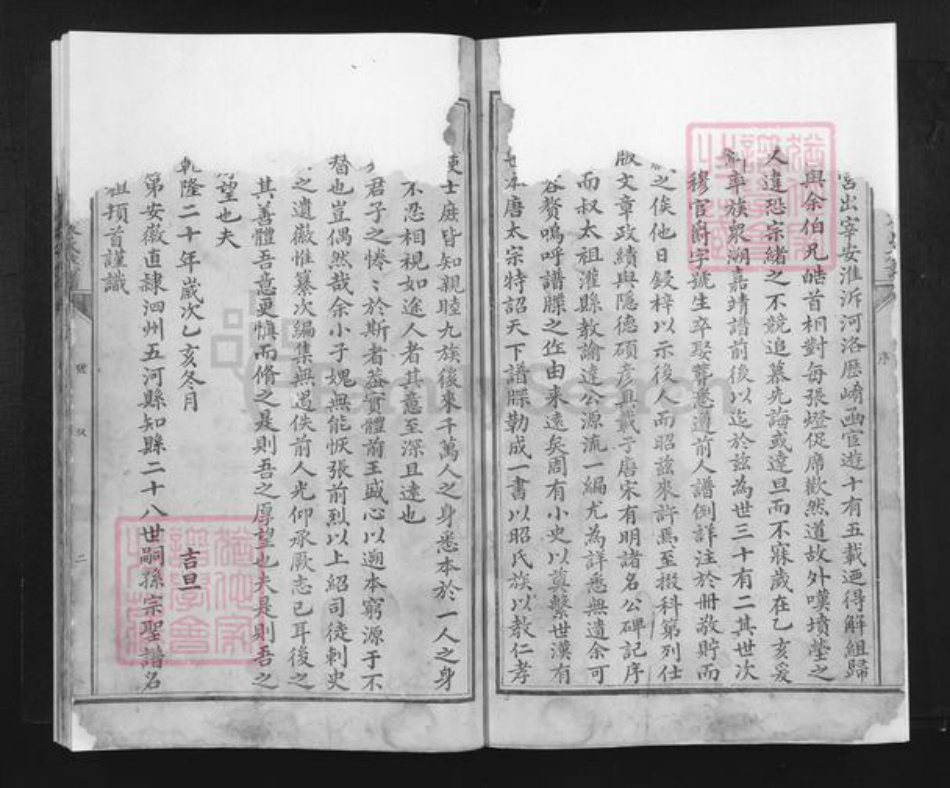 宮出宰安淮泝河洛歷崤函宦遊十有五載迺得解組歸
與余伯兄皓首相對每張燈促席歡然道故外嘆墳塋之
人違恐宗緒之不競追慕先誨或達旦而不寐歲在乙亥爰
率族衆溯嘉靖譜前後以迄於茲為世三十有二其世次
穆官爵字號生卒娶葬悉遵前人譜例詳注於冊敬貯而
之俟他日鋟梓以示後人而昭茲來許焉至掇科第列仕
版文章政績與隱德碩彥具載于唐宋有明諸名公碑記序
而叔太祖灌縣教諭達公源流一編尤為詳悉無遺余可
容贅嗚呼譜牒之作由來遠矣周有小史以奠繫世漢有
本唐太宗特詔天下譜牒勒成一書以昭氏族以教仁孝
使士庶皆知親睦九族後來千萬人之身悉本於一人之身
不忍相視如途人者其意至深且遠也
君子之惓〻於斯者蓋實體前王盛心以溯本窮源于不
替也豈偶然哉余小子媿無能恢張前烈以上紹司徒刺史
之遺徽惟纂次編集無遏佚前人光仰承厥志已耳後之
其善體吾意更慎而脩之是則吾之厚望也夫是則吾之
望也夫
乾隆二十年歲次乙亥冬月 吉旦
第安徽直隸泗州五河縣知縣二十八世嗣孫宗聖譜名
祖頓首謹識
序
二
FamilySearch